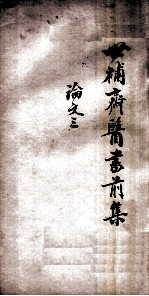 世補齊醫書前集
論文三